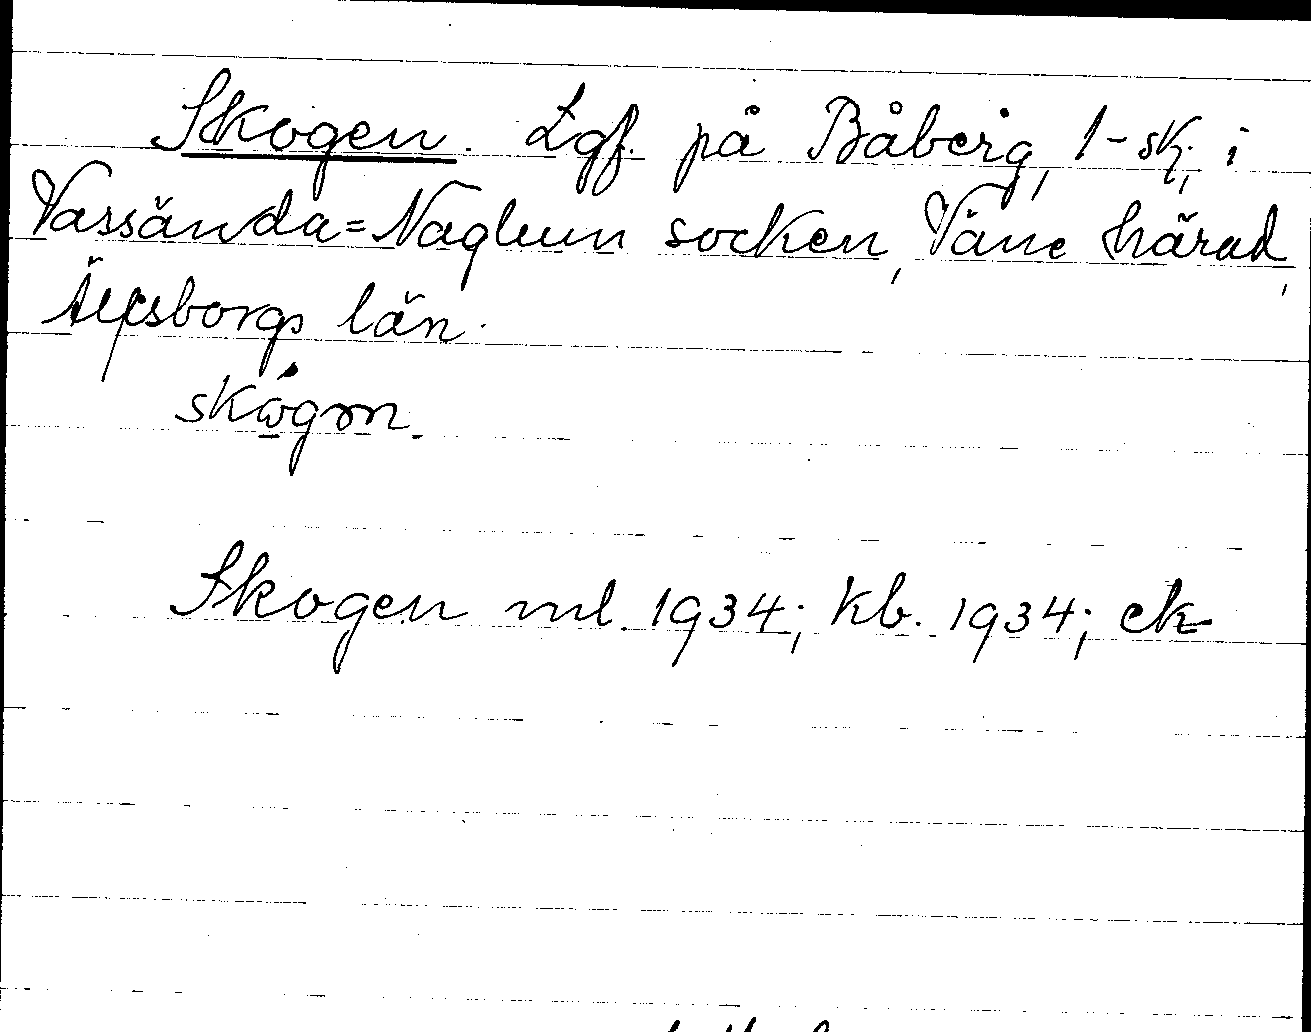 Skogen. Lgf. på Båberg, 1-sk, i
Vassända=Naglum socken, Väne härad,
Älvsborgs län.
skógm.
Skogen ml. 1934; kb. 1934; ek